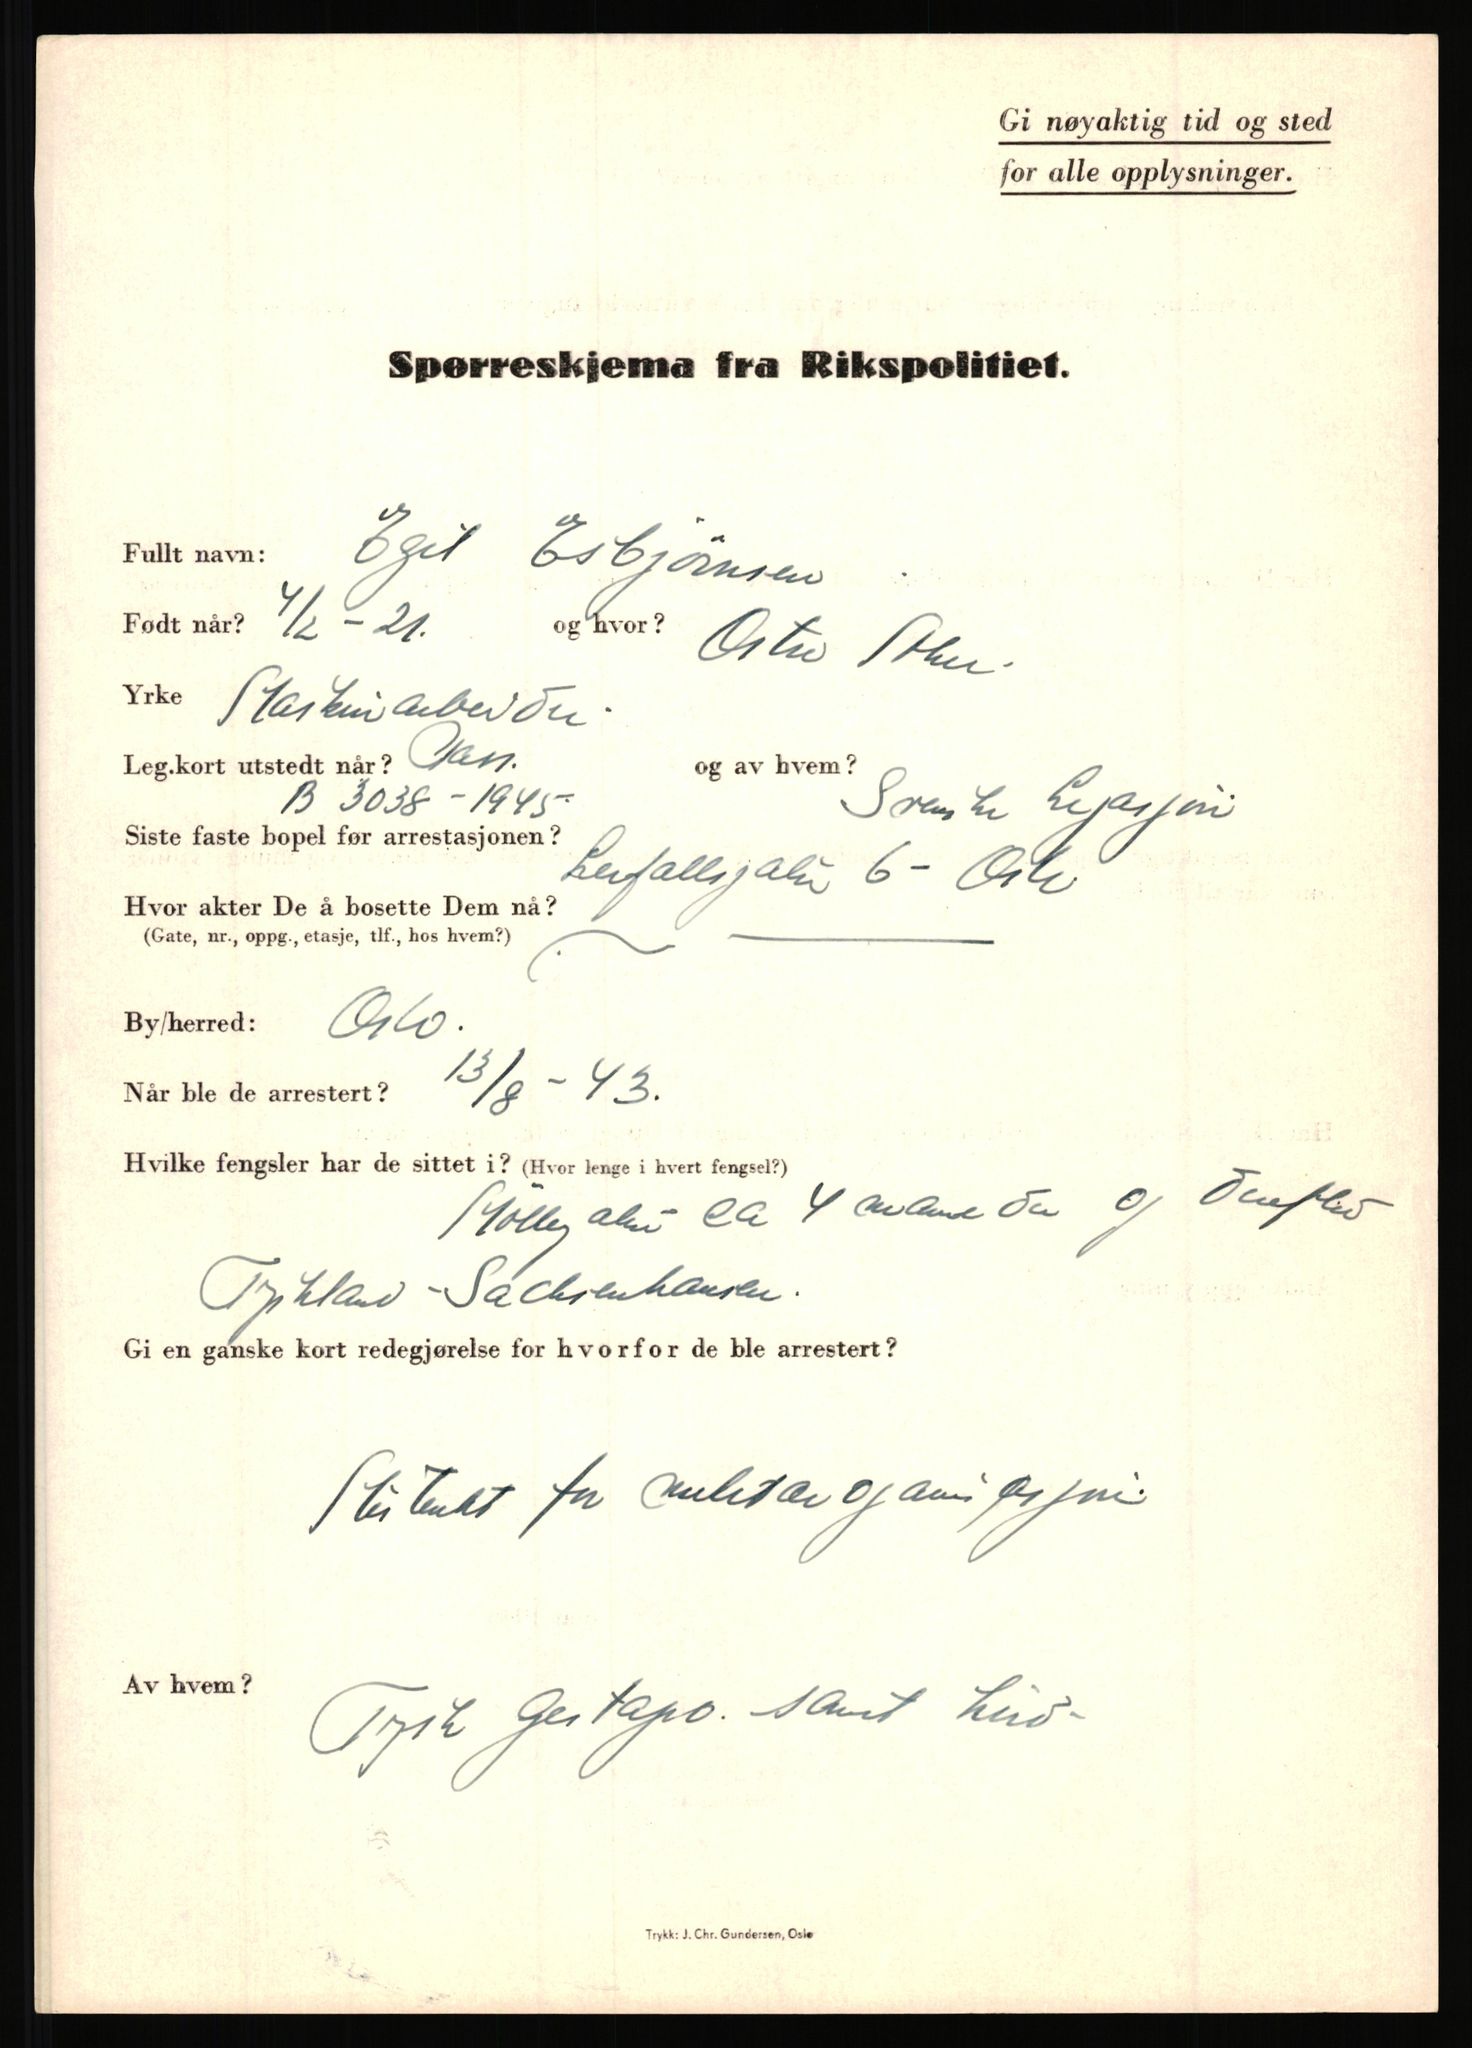 Gi nøyaktig tid og sted
for alle opplysninger.
Spørreskjema fra Rikspolitiet.
Fullt navn: Egil Esbjörnsen
Født når? 4/2 - 21. og hvor? Østre Aker.
Yrke Maskinarbeider.
Leg.kort utstedt når? Pass. og av hvem? Svenske Legasjon
B 3038 - 1945-
Siste faste bopel før arrestasjonen? Lerfallsgaten 6 - Oslo
Hvor akter De å bosette Dem nå?
(Gate, nr., oppg., etasje, tlf., hos hvem?)
By/herred: Oslo.
Når ble de arrestert? 13/8 - 43.
Hvilke fengsler har de sittet i? (Hvor lenge i hvert fengsel?)
Möllergaten ca 4 måneder og derefter
Tyskland - Sachsenhausen.
Gi en ganske kort redegjørelse for hvorfor de ble arrestert?
Mistenkt for militær organisasjon.
Av hvem? Tysk Gestapo. samt hird-
Trykk: J. Chr. Gundersen, Oslo